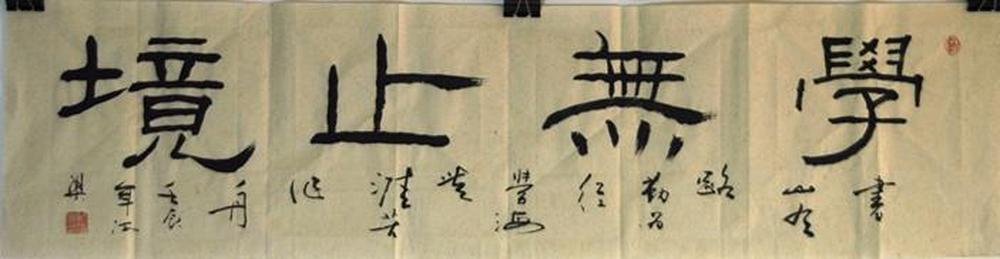 學無止境
書山有路勤为径學海無涯苦作舟
壬辰年江